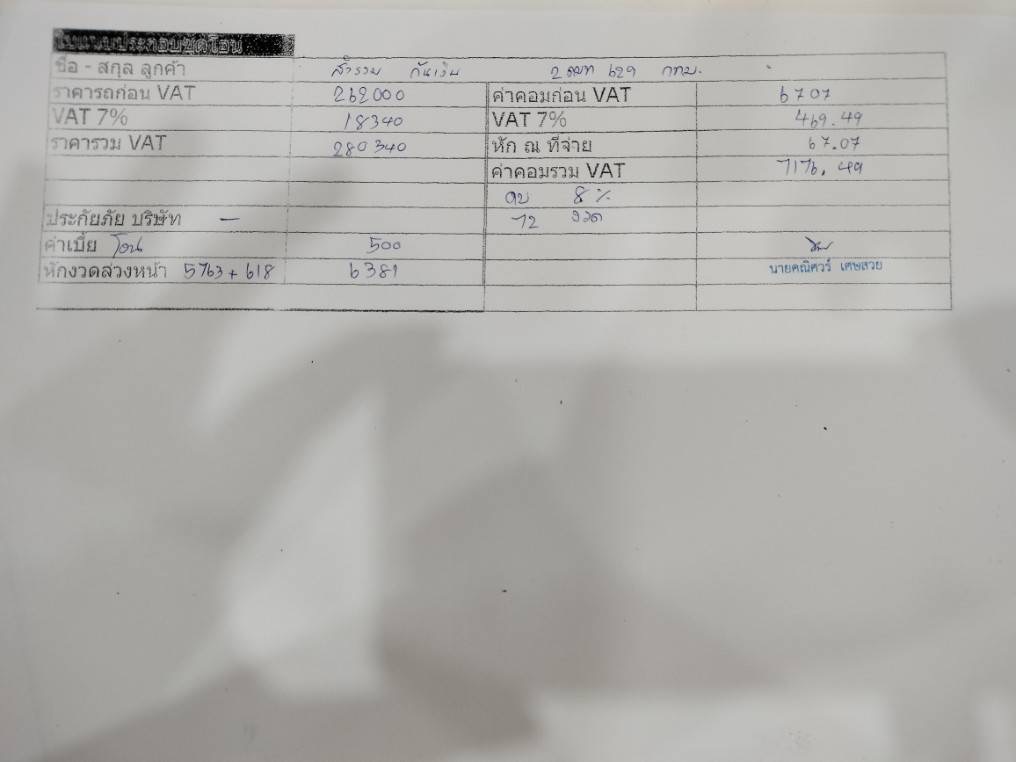 ใบแนบประกอบชุดโอน
ชื่อ - สกุล ลูกค้า สำรวย กันเงิน 2 ฒท 629 กทม.
ราคารถก่อน VAT 262000 ค่าคอมก่อน VAT 6707
VAT 7% 18340 VAT 7% 469.49
ราคารวม VAT 280340 หัก ณ ที่จ่าย 67.07
ค่าคอมรวม VAT 7176.49
ดบ 8%
ประกัยภัย บริษัท — 72 งวด
ค่าเบี้ย โอน 500
หักงวดล่วงหน้า 5763 + 618 6381 นายคณิศวร์ เศษสวย